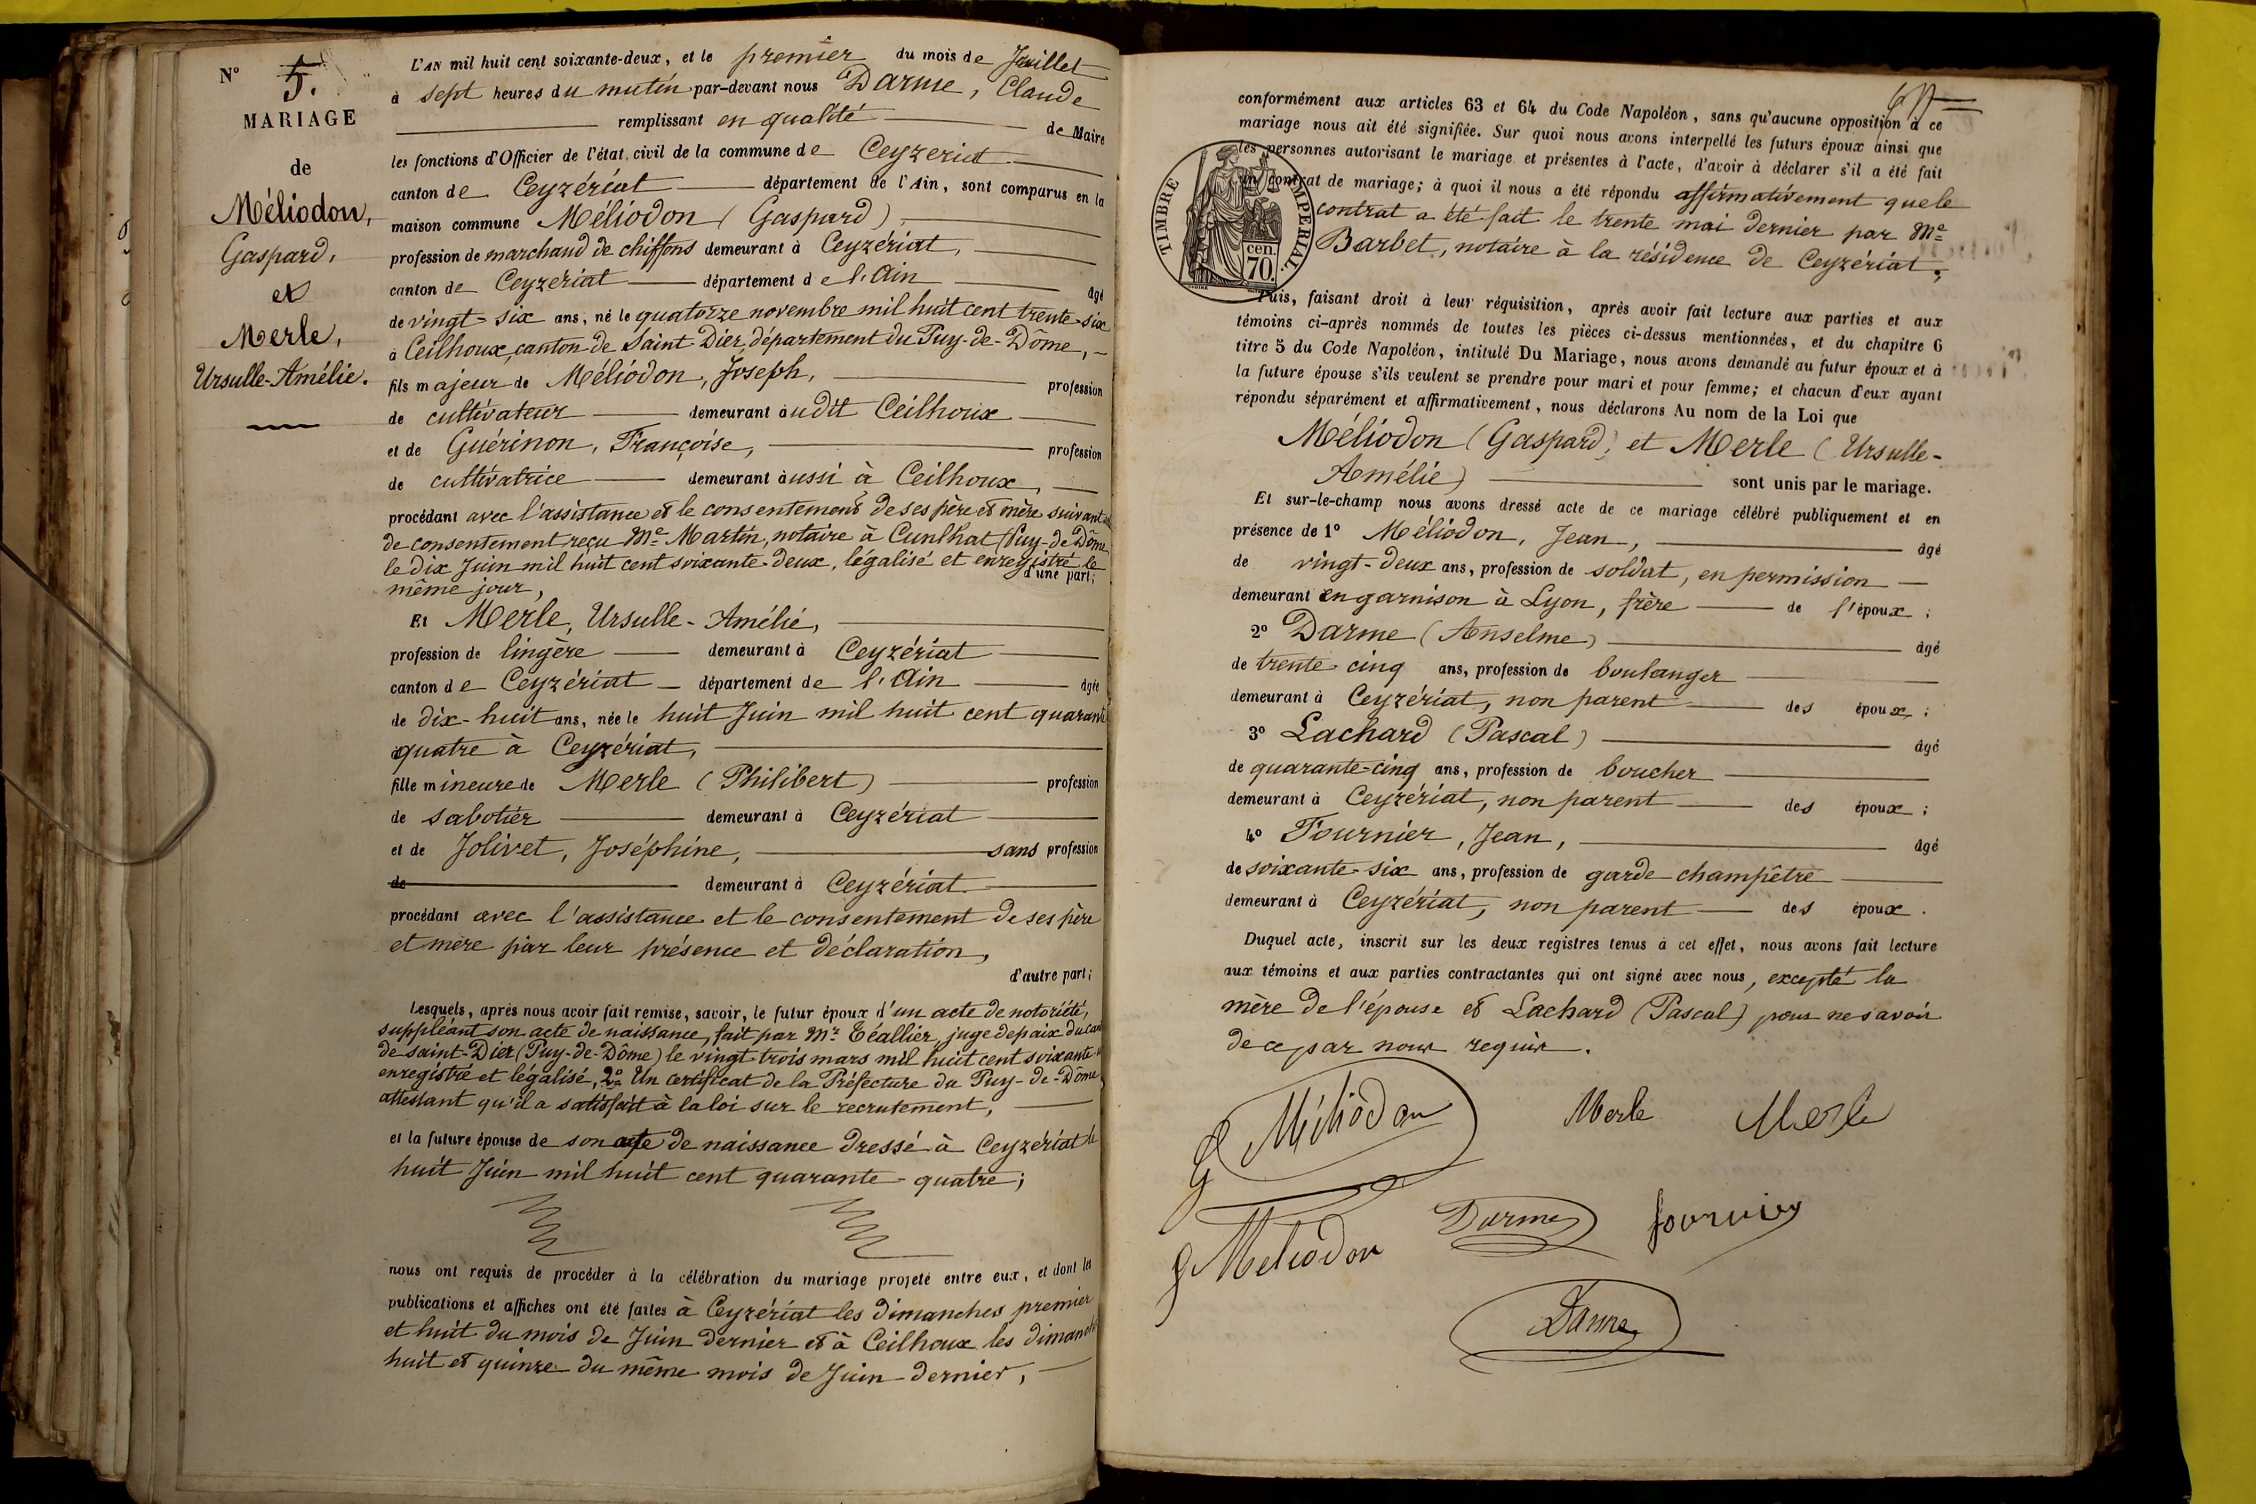 N° 5.
MARIAGE
de
Méliodon,
Gaspard,
et
Merle,
Ursulle-Amélie.
L'AN mil huit cent soixante-deux, et le premier du mois de Juillet
à sept heures du matin par-devant nous Darme, Claude
remplissant en qualité de Maire
les fonctions d'Officier de l'état civil de la commune de Ceyzeriat
canton de Ceyzériat département de l'Ain, sont comparus en la
maison commune Méliodon (Gaspard),
profession de marchand de chiffons demeurant à Ceyzériat,
canton de Ceyzeriat département de l'Ain âgé
de vingt-six ans, né le quatorze novembre mil huit cent trente-six
à Ceilhoux, canton de Saint-Dier, département du Puy-de-Dôme,
fils majeur de Méliodon, Joseph, profession
de cultivateur demeurant audit Ceilhoux
et de Guérinon, Françoise, profession
de cultivatrice demeurant aussi à Ceilhoux,
procédant avec l'assistance et le consentement de ses père et mère suivant
de consentement reçu Me Martin, notaire à Cunlhat (Puy-de-Dôme
le dix Juin mil huit cent soixante-deux, légalisé et enregistré le
même jour, d'une part;
Et Merle, Ursulle-Amélie,
profession de lingère demeurant à Ceyzériat
canton de Ceyzériat département de l'Ain âgée
de dix-huit ans, née le huit Juin mil huit cent quarante
quatre à Ceyzériat,
fille mineure de Merle (Philibert) profession
de sabotier demeurant à Ceyzériat
et de Jolivet, Joséphine, sans profession
de demeurant à Ceyzériat
procédant avec l'assistance et le consentement de ses père
et mère par leur présence et déclaration,
d'autre part;
Lesquels, après nous avoir fait remise, savoir, le futur époux d'un acte de notoriété,
suppléant son acte de naissance, fait par Mr Téallier, juge de paix du can
de saint-Dier (Puy-de-Dôme) le vingt-trois mars mil huit cent soixante
enregistré et légalisé, 2° Un certificat de la Préfecture du Puy-de-Dôme
attestant qu'il a satisfait à la loi sur le recrutement,
et la future épouse de son acte de naissance dressé à Ceyzériat le
huit Juin mil huit cent quarante-quatre;
nous ont requis de procéder à la célébration du mariage projeté entre eux, et dont les
publications et affiches ont été faites à Ceyzériat les dimanches premier
et huit du mois de Juin dernier et à Ceilhoux les dimanches
huit et quinze du même mois de Juin dernier,
conformément aux articles 63 et 64 du Code Napoléon, sans qu'aucune opposition à ce
mariage nous ait été signifiée. Sur quoi nous avons interpellé les futurs époux ainsi que
les personnes autorisant le mariage et présentes à l'acte, d'avoir à déclarer s'il a été fait
un contrat de mariage; à quoi il nous a été répondu affirmativement que le
contrat a été fait le trente mai dernier par Me
Barbet, notaire à la résidence de Ceyzériat;
TIMBRE IMPERIAL.
cen.
70.
Puis, faisant droit à leur réquisition, après avoir fait lecture aux parties et aux
témoins ci-après nommés de toutes les pièces ci-dessus mentionnées, et du chapitre 6
titre 5 du Code Napoléon, intitulé Du Mariage, nous avons demandé au futur époux et à
la future épouse s'ils veulent se prendre pour mari et pour femme; et chacun d'eux ayant
répondu séparément et affirmativement, nous déclarons Au nom de la Loi que
Méliodon (Gaspard) et Merle (Ursulle-
Amélie) sont unis par le mariage.
Et sur-le-champ nous avons dressé acte de ce mariage célébré publiquement et en
présence de 1° Méliodon, Jean, âgé
de vingt-deux ans, profession de soldat, en permission
demeurant en garnison à Lyon, frère de l'époux;
2° Darme (Anselme) âgé
de trente-cinq ans, profession de boulanger
demeurant à Ceyzériat, non parent des époux;
3° Lachard (Pascal) âgé
de quarante-cinq ans, profession de boucher
demeurant à Ceyzériat, non parent des époux;
4° Fournier, Jean, âgé
de soixante-six ans, profession de garde-champêtre
demeurant à Ceyzériat, non parent des époux.
Duquel acte, inscrit sur les deux registres tenus à cet effet, nous avons fait lecture
aux témoins et aux parties contractantes qui ont signé avec nous, excepté la
mère de l'épouse et Lachard (Pascal) pour ne savoir
de ce par nous requis.
G Méliodon Merle Merle
Meliodon Darme fournier
Darme